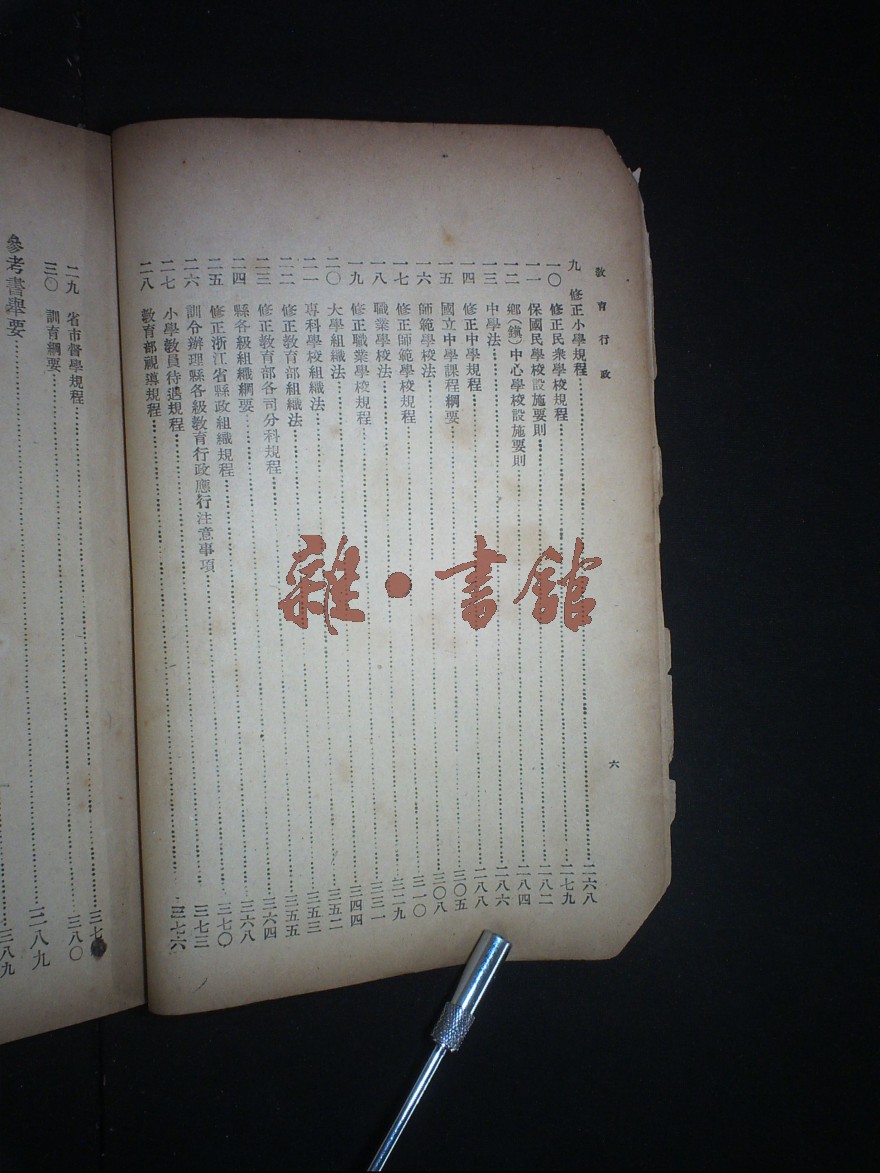 教育行政 六
九 修正小學規程……二六八
一〇 修正民衆學校規程……二七九
一一 保國民學校設施要則……二八二
一二 鄉(鎮)中心學校設施要則……二八四
一三 中學法……二八六
一四 修正中學規程……二八八
一五 國立中學課程綱要……三〇五
一六 師範學校法……三〇八
一七 修正師範學校規程……三一〇
一八 職業學校法……三二九
一九 修正職業學校規程……三三一
二〇 大學組織法……三四四
二一 專科學校組織法……三五二
二二 修正教育部組織法……三五三
二三 修正教育部各司分科規程……三五五
二四 縣各級組織綱要……三六四
二五 修正浙江省縣政組織規程……三六八
二六 訓令辦理縣各級教育行政應行注意事項……三七〇
二七 小學教員待遇規程……三七三
二八 教育部視導規程……三七六
二九 省市督學規程……三七
三〇 訓育綱要……三八〇
參考書舉要……三八九
……三八九
雜·書館